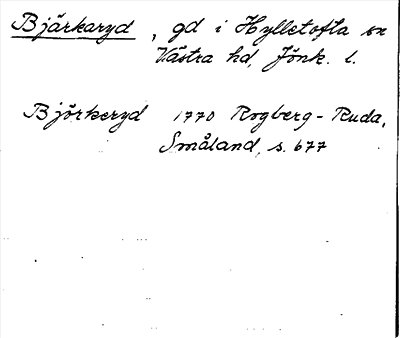 Bjärkaryd, gd i Hylletofta sn
Västra hd, Jönk. l.
Björkeryd 1770 Rogberg-Ruda,
Småland, s. 677